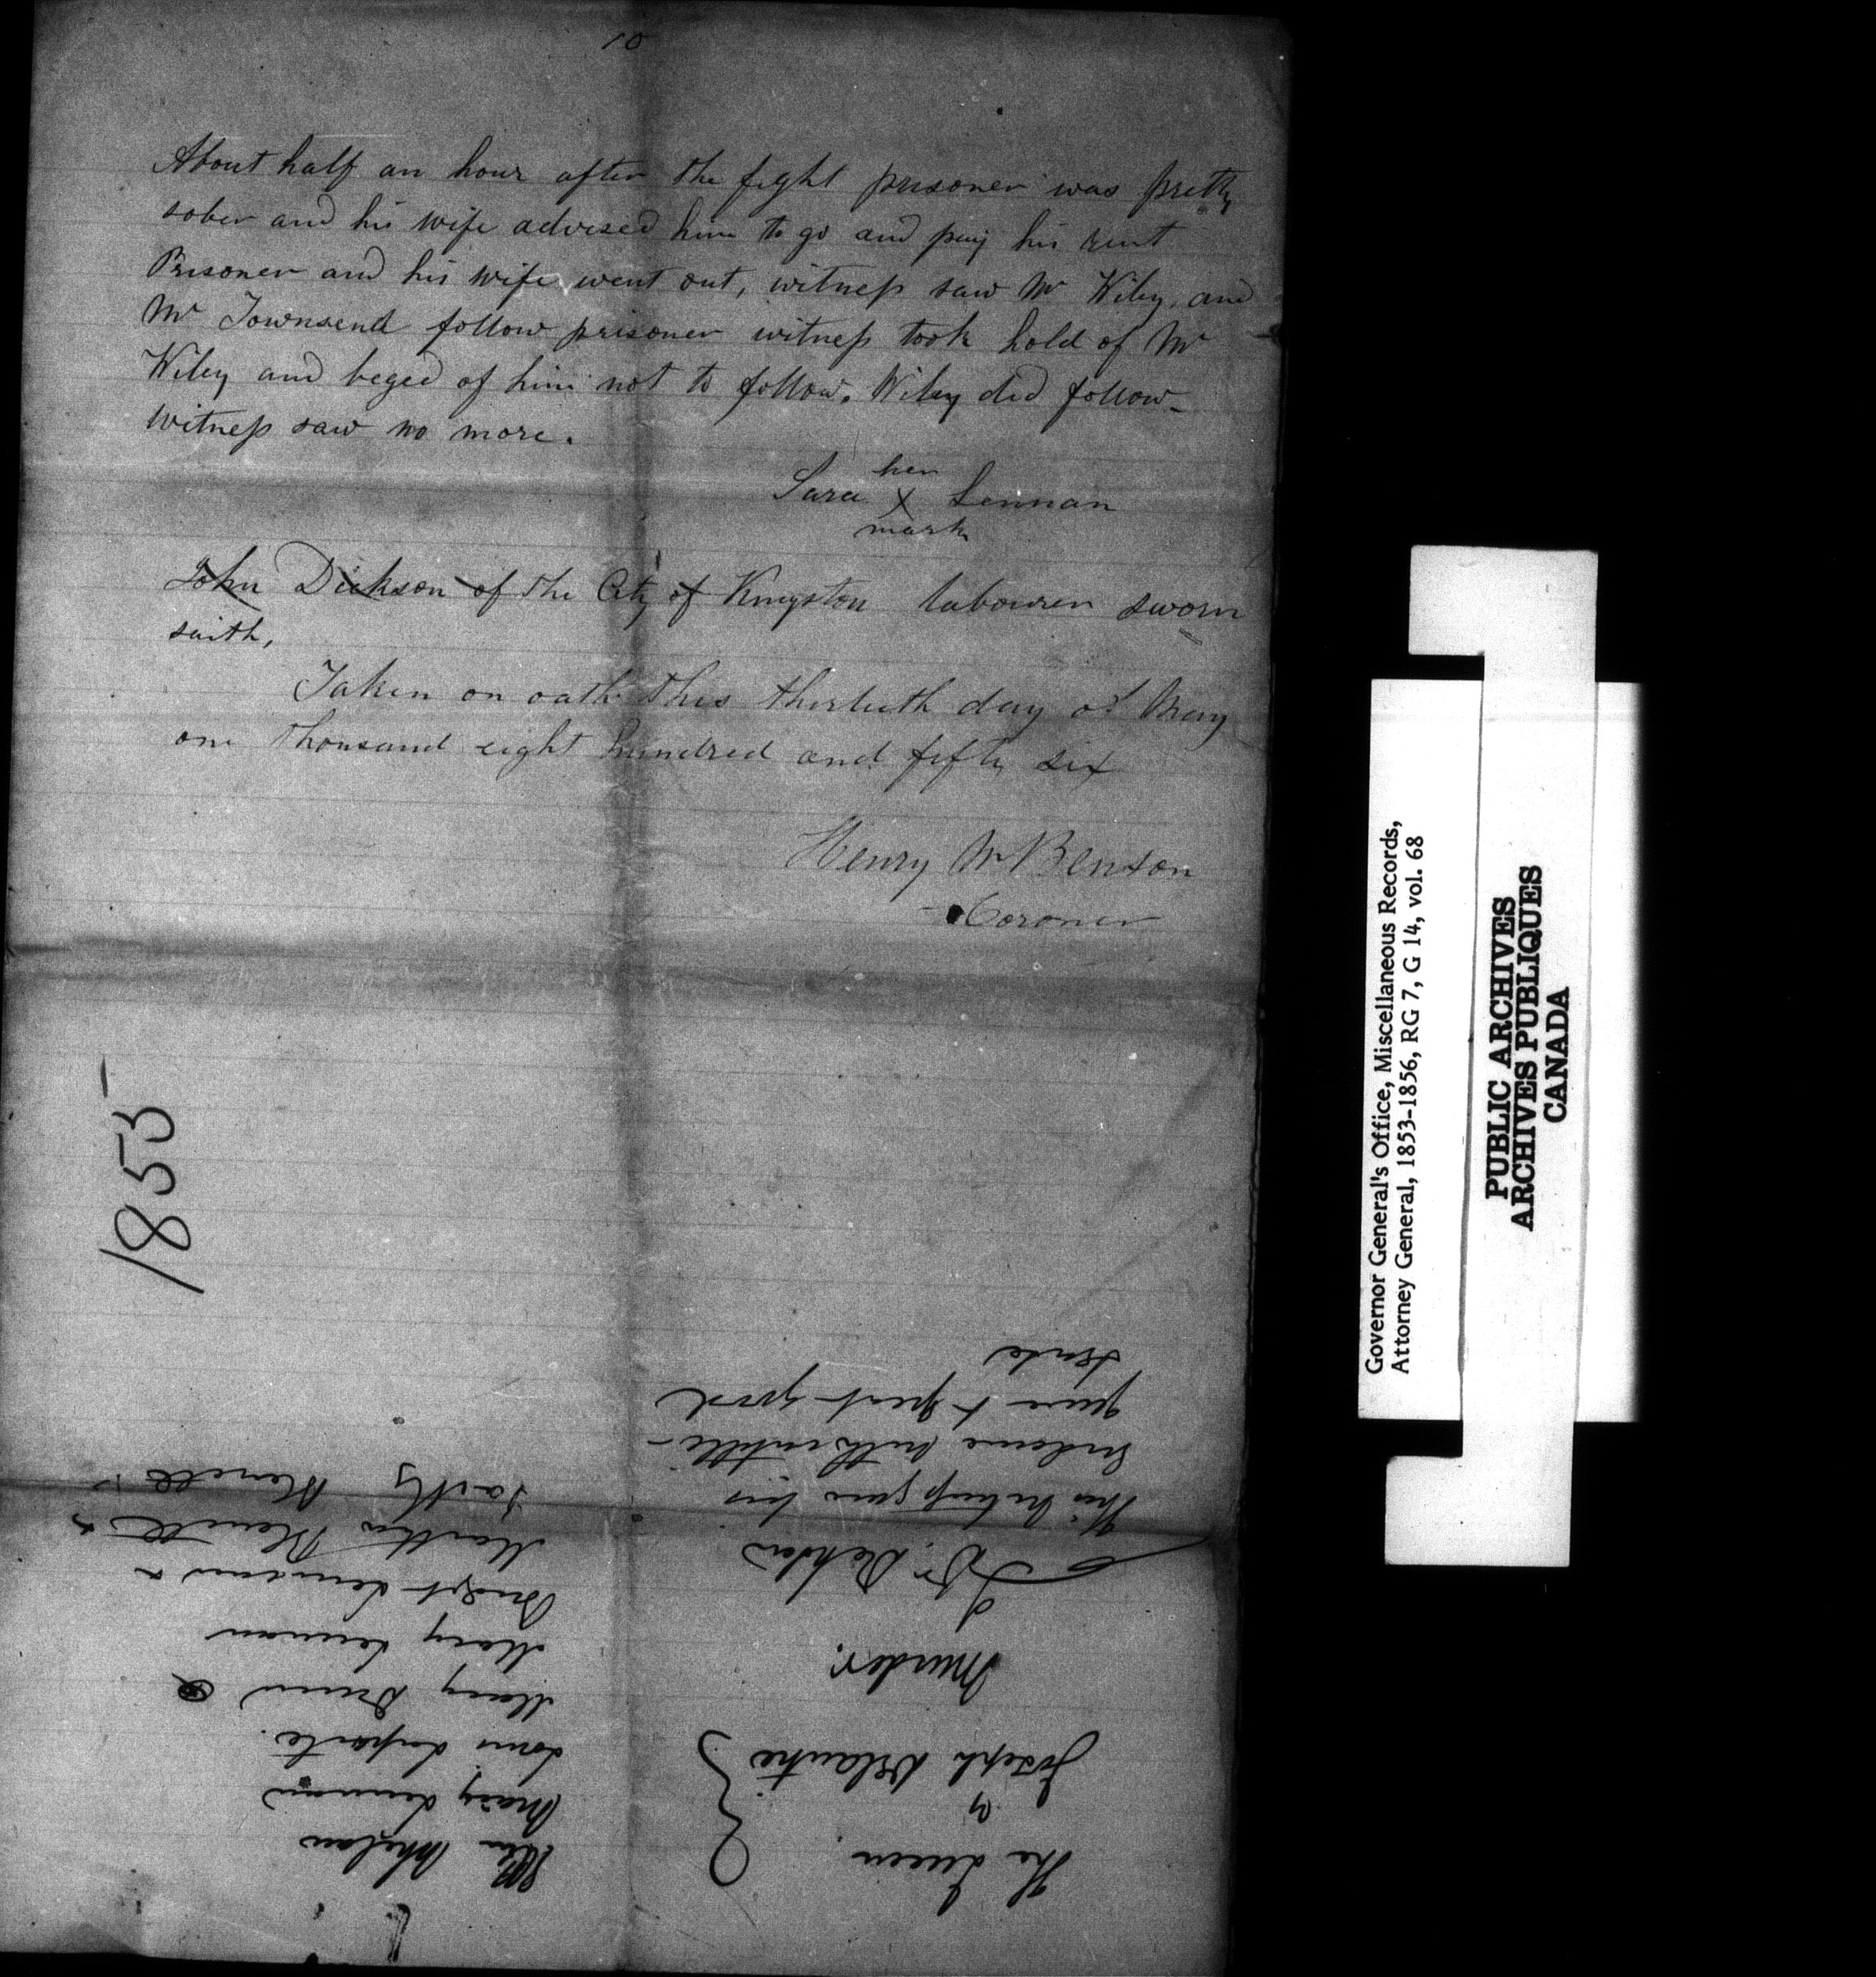 10
About half an hour after the fight prisoner was pretty
sober and his wife advised him to go and pay his rent
Prisoner and his wife went out, witness saw Mr Wiley, and
Mr Townsend follow prisoner witness took hold of Mr
Wiley and beged of him not to follow. Wiley did follow_
witness saw no more.
her
Sara X Lennan
mark
John Dickson of the City of Kingston labourer sworn
saith,
Taken on oath this thirtieth day of May
one thousand eight hundred and fifty six
Henry W Benson
Coroner
1855
The Queen
v
Joseph
Murder.
This witness gave his
Evidence with intelli-
gence & great good
Whelan
Mary Lennan
Louis Laporte.
Mary
Mary Lennan
Bridget Lennan
Martha
Governor General's Office, Miscellaneous Records,
Attorney General, 1853-1856, RG 7, G 14, vol. 68
PUBLIC ARCHIVES
ARCHIVES PUBLIQUES
CANADA